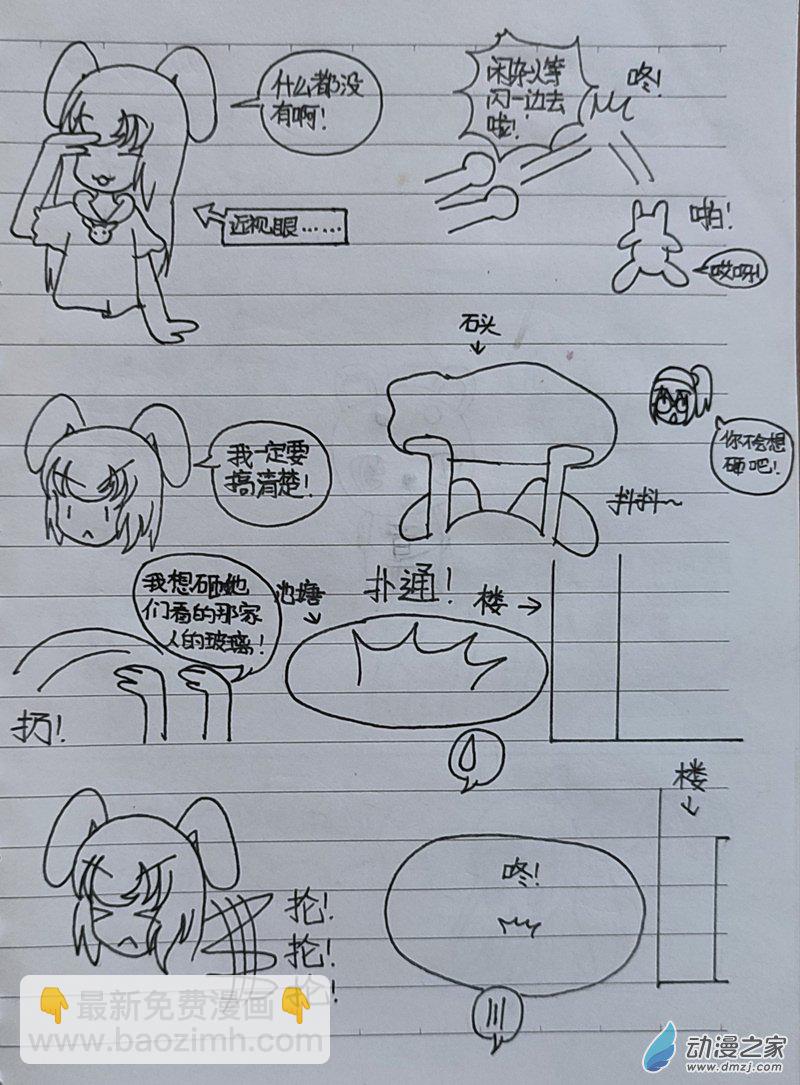 什么都没
有啊！
近视眼……
闲杂火等
闪一边去
啦！
咚！
啪！
哎呀！
我一定要
搞清楚！
石头
↓
你不会想
砸吧！
抖抖~
我想砸她
们看的那家
人的玻璃！
扔！
池塘
扑通！
楼→
抡！
抡！
抡！
咚！
楼
↓
最新免费漫画
www.baozimh.com
动漫之家
www.dmzj.com